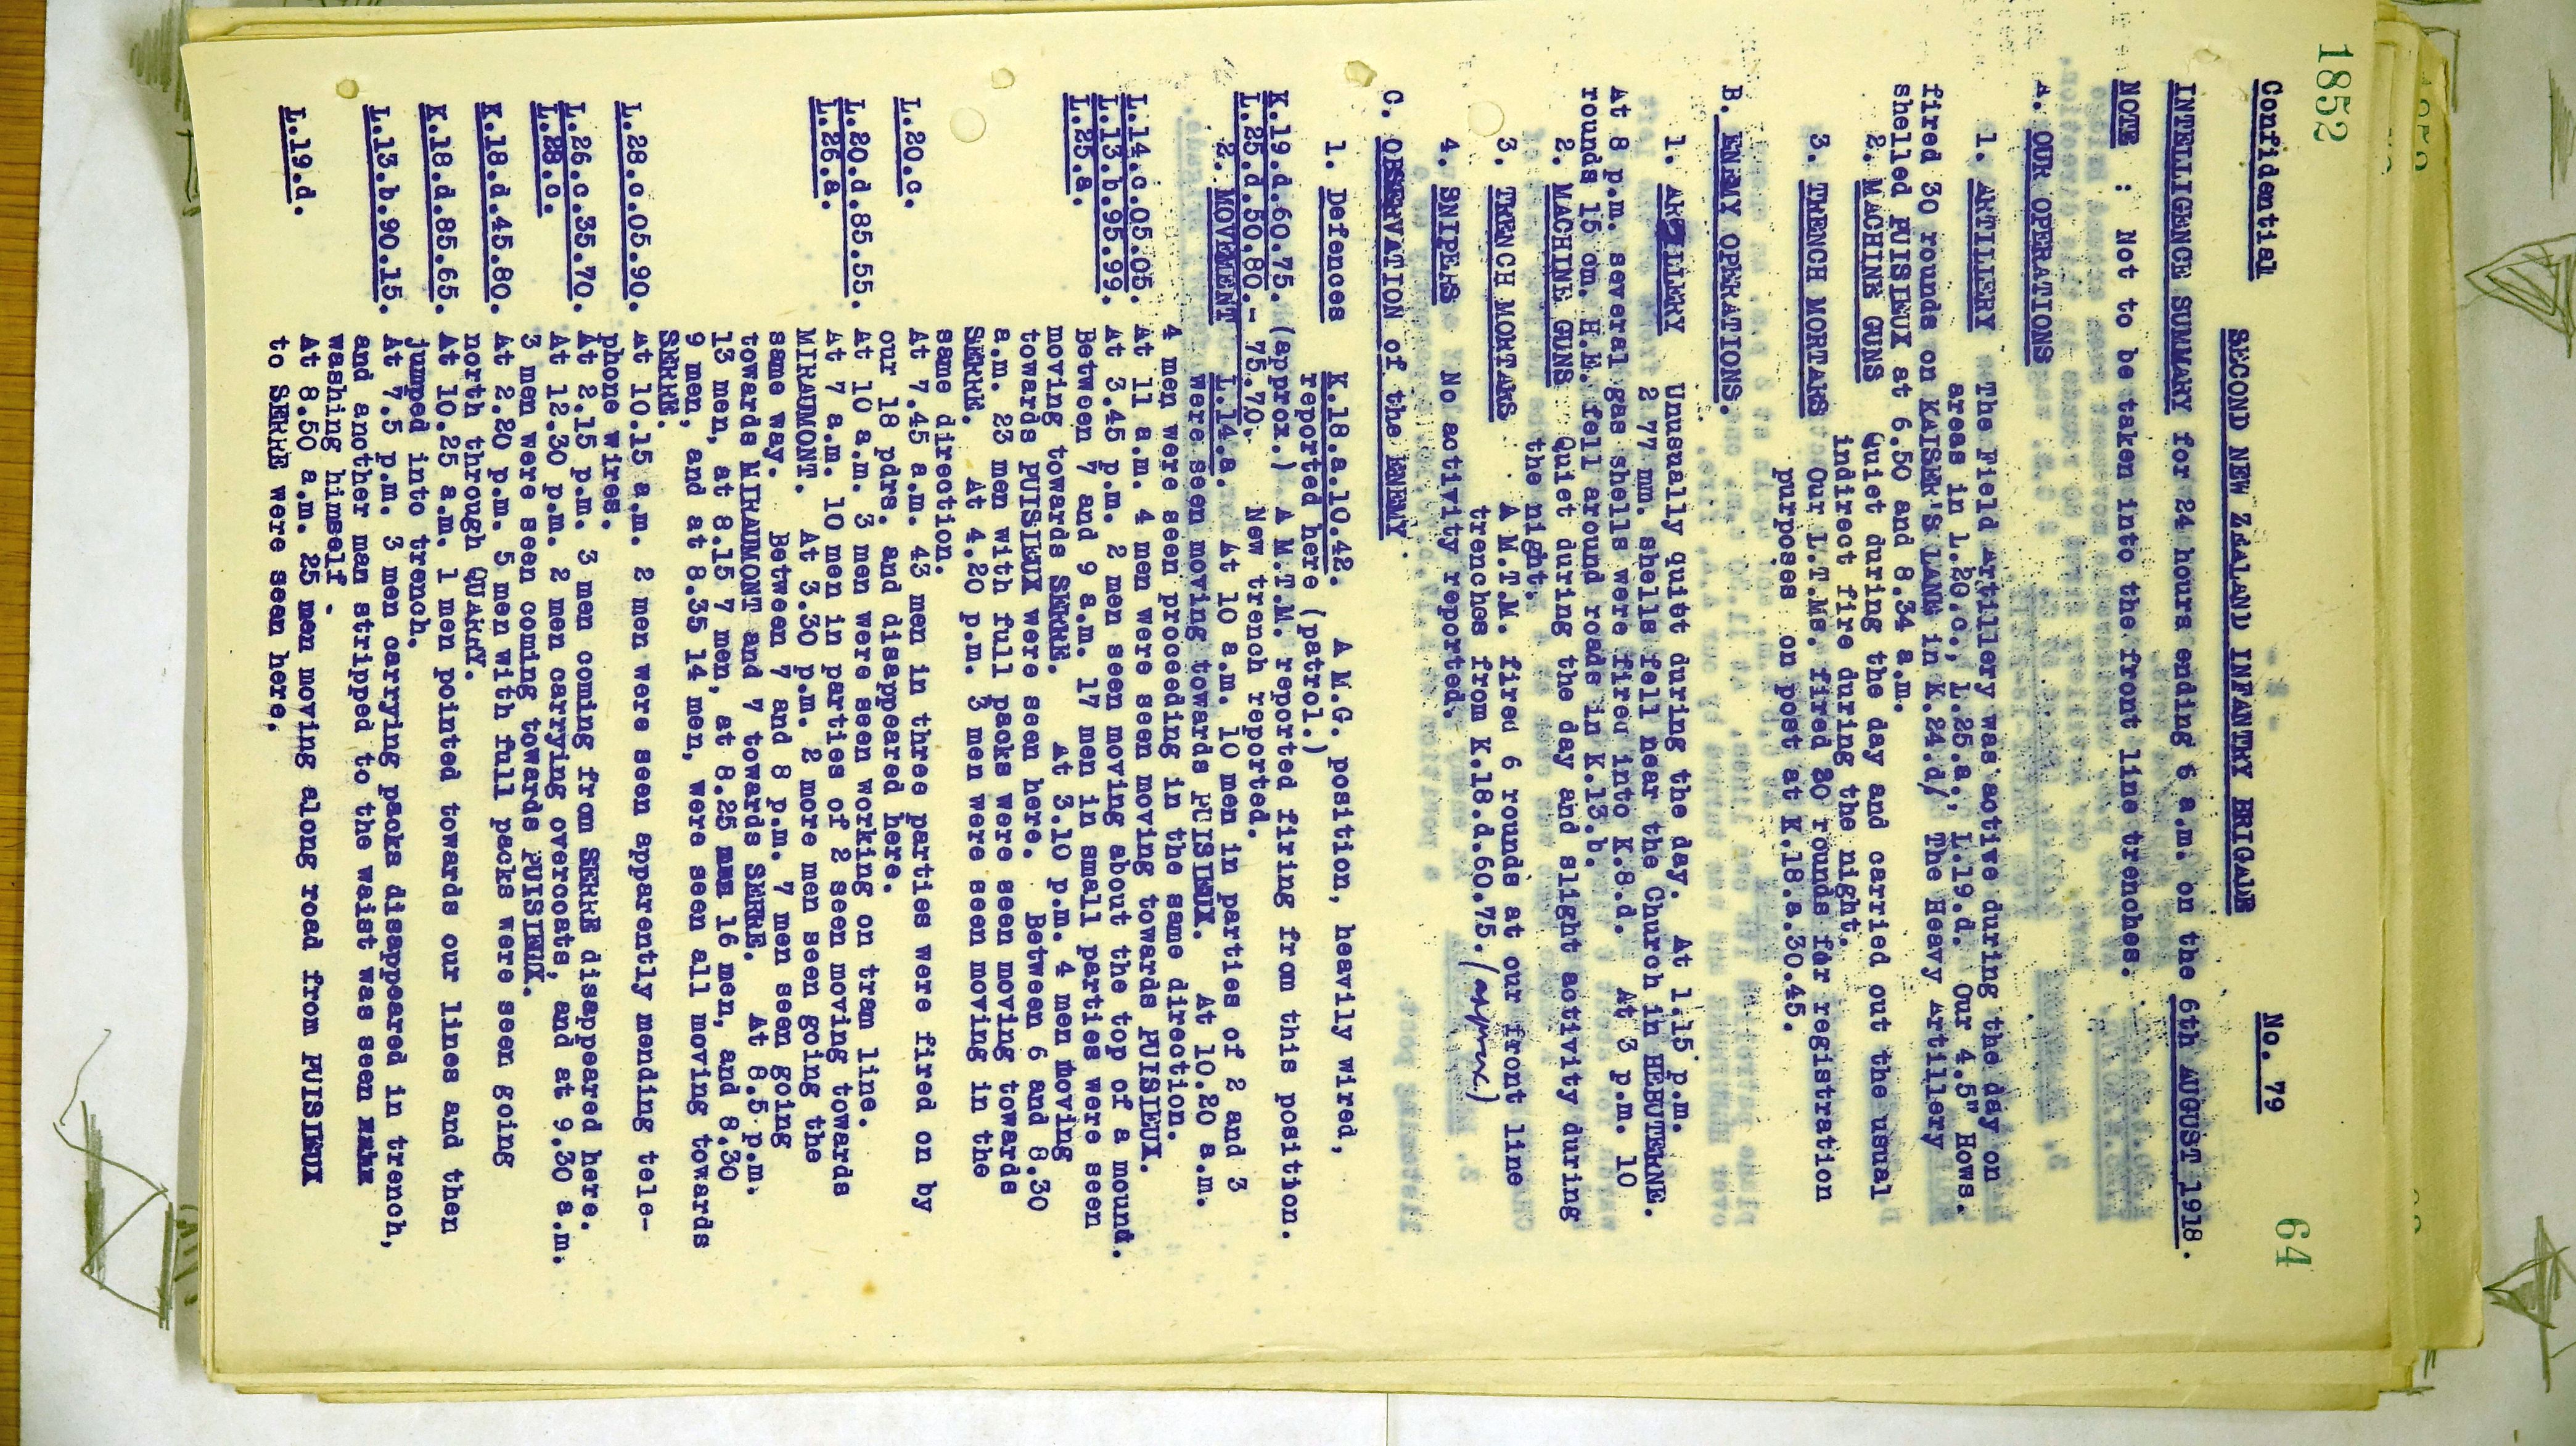 1852
64
Confidential
No. 79
SECOND NEW ZEALAND INFANTRY BRIGADE
INTELLIGENCE SUMMARY for 24 hours ending 6 a.m. on the 6th AUGUST 1918.
NOTE : Not to be taken into the front line trenches.
A. OUR OPERATIONS
1. ARTILLERY The Field Artillery was active during the day on
areas in L.20.c., L.25.a., L.19.d. Our 4.5" Hows.
fired 30 rounds on KAISER'S LANE in K.24.d/ The Heavy Artillery
shelled PUISIEUX at 6.50 and 8.34 a.m.
2. MACHINE GUNS Quiet during the day and carried out the usual
indirect fire during the night.
3. TRENCH MORTARS Our L.T.Ms. fired 20 rounds for registration
purposes on post at K.18.a.30.45.
B. ENEMY OPERATIONS.
1. ARTILLERY Unusually quiet during the day. At 1.15 p.m.
2 77 mm. shells fell near the Church in HEBUTERNE.
At 8 p.m. several gas shells were fired into K.8.d. At 3 p.m. 10
rounds 15 cm. H.E. fell around roads in K.13.b.
2. MACHINE GUNS Quiet during the day and slight activity during
the night.
3. TRENCH MORTARS A M.T.M. fired 6 rounds at our front line
trenches from K.18.d.60.75. (approx.)
4. SNIPERS No activity reported.
C. OBSERVATION of the ENEMY.
1. Defences K.18.a.10.42. A M.G. position, heavily wired,
reported here (patrol.)
K.19.d.60.75. (approx.) A M.T.M. reported firing from this position.
L.25.d.50.80.- 75.70. New trench reported.
2. MOVEMENT L.14.a. At 10 a.m. 10 men in parties of 2 and 3
were seen moving towards PUISIEUX. At 10.20 a.m.
4 men were seen proceeding in the same direction.
L.14.c.05.05. At 11 a.m. 4 men were seen moving towards PUISIEUX.
L.13.b.95.99. At 3.45 p.m. 2 men seen moving about the top of a mound.
L.25.a. Between 7 and 9 a.m. 17 men in small parties were seen
moving towards SERRE. At 3.10 p.m. 4 men moving
towards PUISIEUX were seen here. Between 6 and 8.30
a.m. 23 men with full packs were seen moving towards
SERRE. At 4.20 p.m. 3 men were seen moving in the
same direction.
L.20.c. At 7.45 a.m. 43 men in three parties were fired on by
our 18 pdrs. and disappeared here.
L.20.d.85.55. At 10 a.m. 3 men were seen working on tram line.
L.26.a. At 7 a.m. 10 men in parties of 2 seen moving towards
MIRAUMONT. At 3.30 p.m. 2 more men seen going the
same way. Between 7 and 8 p.m. 7 men seen going
towards MIRAUMONT and 7 towards SERRE. At 8.5 p.m.
13 men, at 8.15 7 men, at 8.25 16 men, and 8.30
9 men, and at 8.35 14 men, were seen all moving towards
SERRE.
L.28.c.05.90. At 10.15 a.m. 2 men were seen apparently mending tele-
phone wires.
L.26.c.35.70. At 2.15 p.m. 3 men coming from SERRE disappeared here.
L.28.c. At 12.30 p.m. 2 men carrying overcoats, and at 9.30 a.m.
3 men were seen coming towards PUISIEUX.
K.18.d.45.80. At 2.20 p.m. 5 men with full packs were seen going
north through QUARRY.
K.18.d.85.65. At 10.25 a.m. 1 men pointed towards our lines and then
jumped into trench.
L.13.b.90.15. At 7.5 p.m. 3 men carrying packs disappeared in trench,
and another man stripped to the waist was seen
washing himself.
L.19.d. At 8.50 a.m. 25 men moving along road from PUISIEUX
to SERRE were seen here.